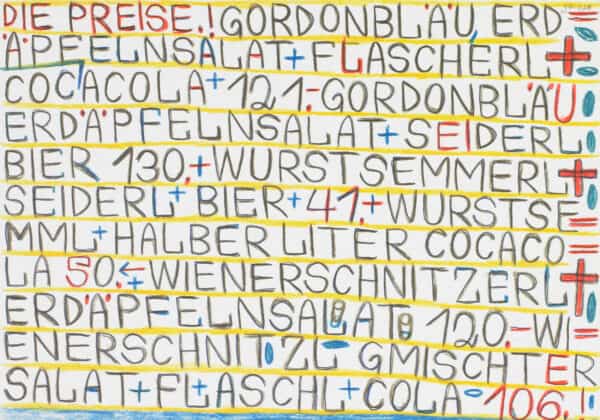 DIE PREISE.! GORDONBLÄÚ ERD=
ÄPFELNSALAT+FLASCHERL+
COCACOLA+121.-GORDONBLÄU
ERDÄPFELNSALAT+SEIDERL
BIER 130.+WURSTSEMMERL+
SEIDERL+BIER+41.+WURSTSE=
MML+HALBER LITER COCACO=
LA 50.+WIENERSCHNITZERL+
ERDÄPFELNSALAT 120.-WI=
ENERSCHNITZL-GMISCHTER
SALAT+FLASCHL+COLA-106.!